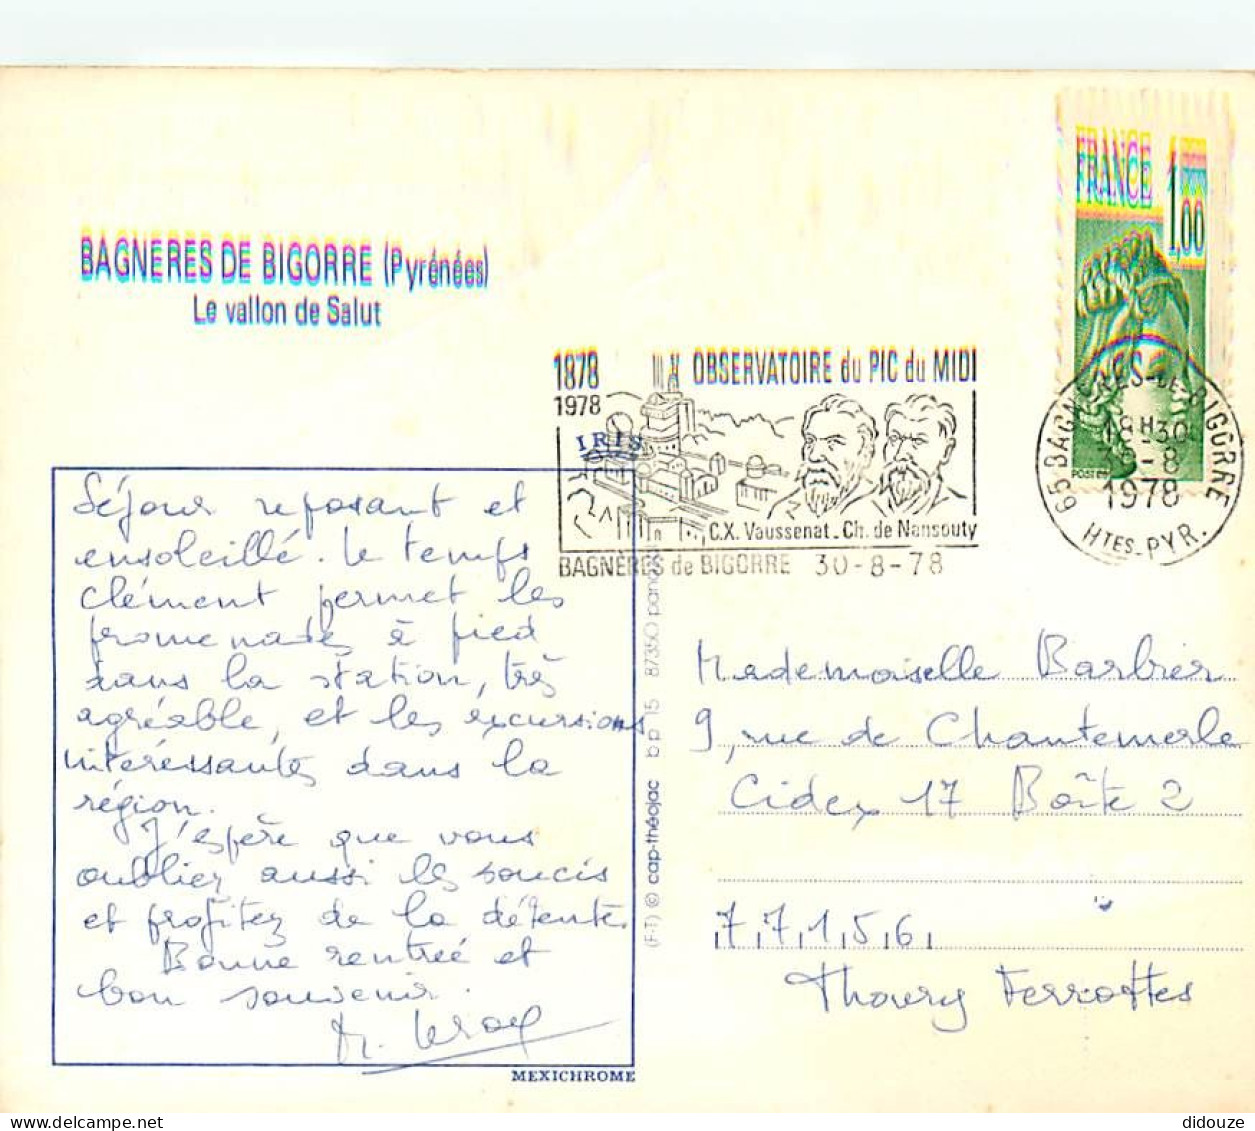 BAGNERES DE BIGORRE (Pyrénées)
Le vallon de Salut
FRANCE 1,00
1878 OBSERVATOIRE du PIC du MIDI
1978
C.X. Vaussenat_Ch. de Nansouty
BAGNERES de BIGORRE 30-8-78
65 BAGNERES-DE-BIGORRE
18H30
-8
1978
HTES-PYR.
IRIS
Séjour reposant et
ensoleillé. Le temps
clément permet les
promenades à pied
dans la station, très
agréable, et les excursions
intéressantes dans la
région.
J'espère que vous
oubliez aussi les soucis
et profitez de la détente.
Bonne rentrée et
bon souvenir.
M. Leroy
MEXICHROME
(F-T) © cap-théojac bp 15 87350 panazol
Mademoiselle Barbier
9, rue de Chantemerle
Cidex 17 Boîte 2
77156
Thoury Ferrottes
didouze